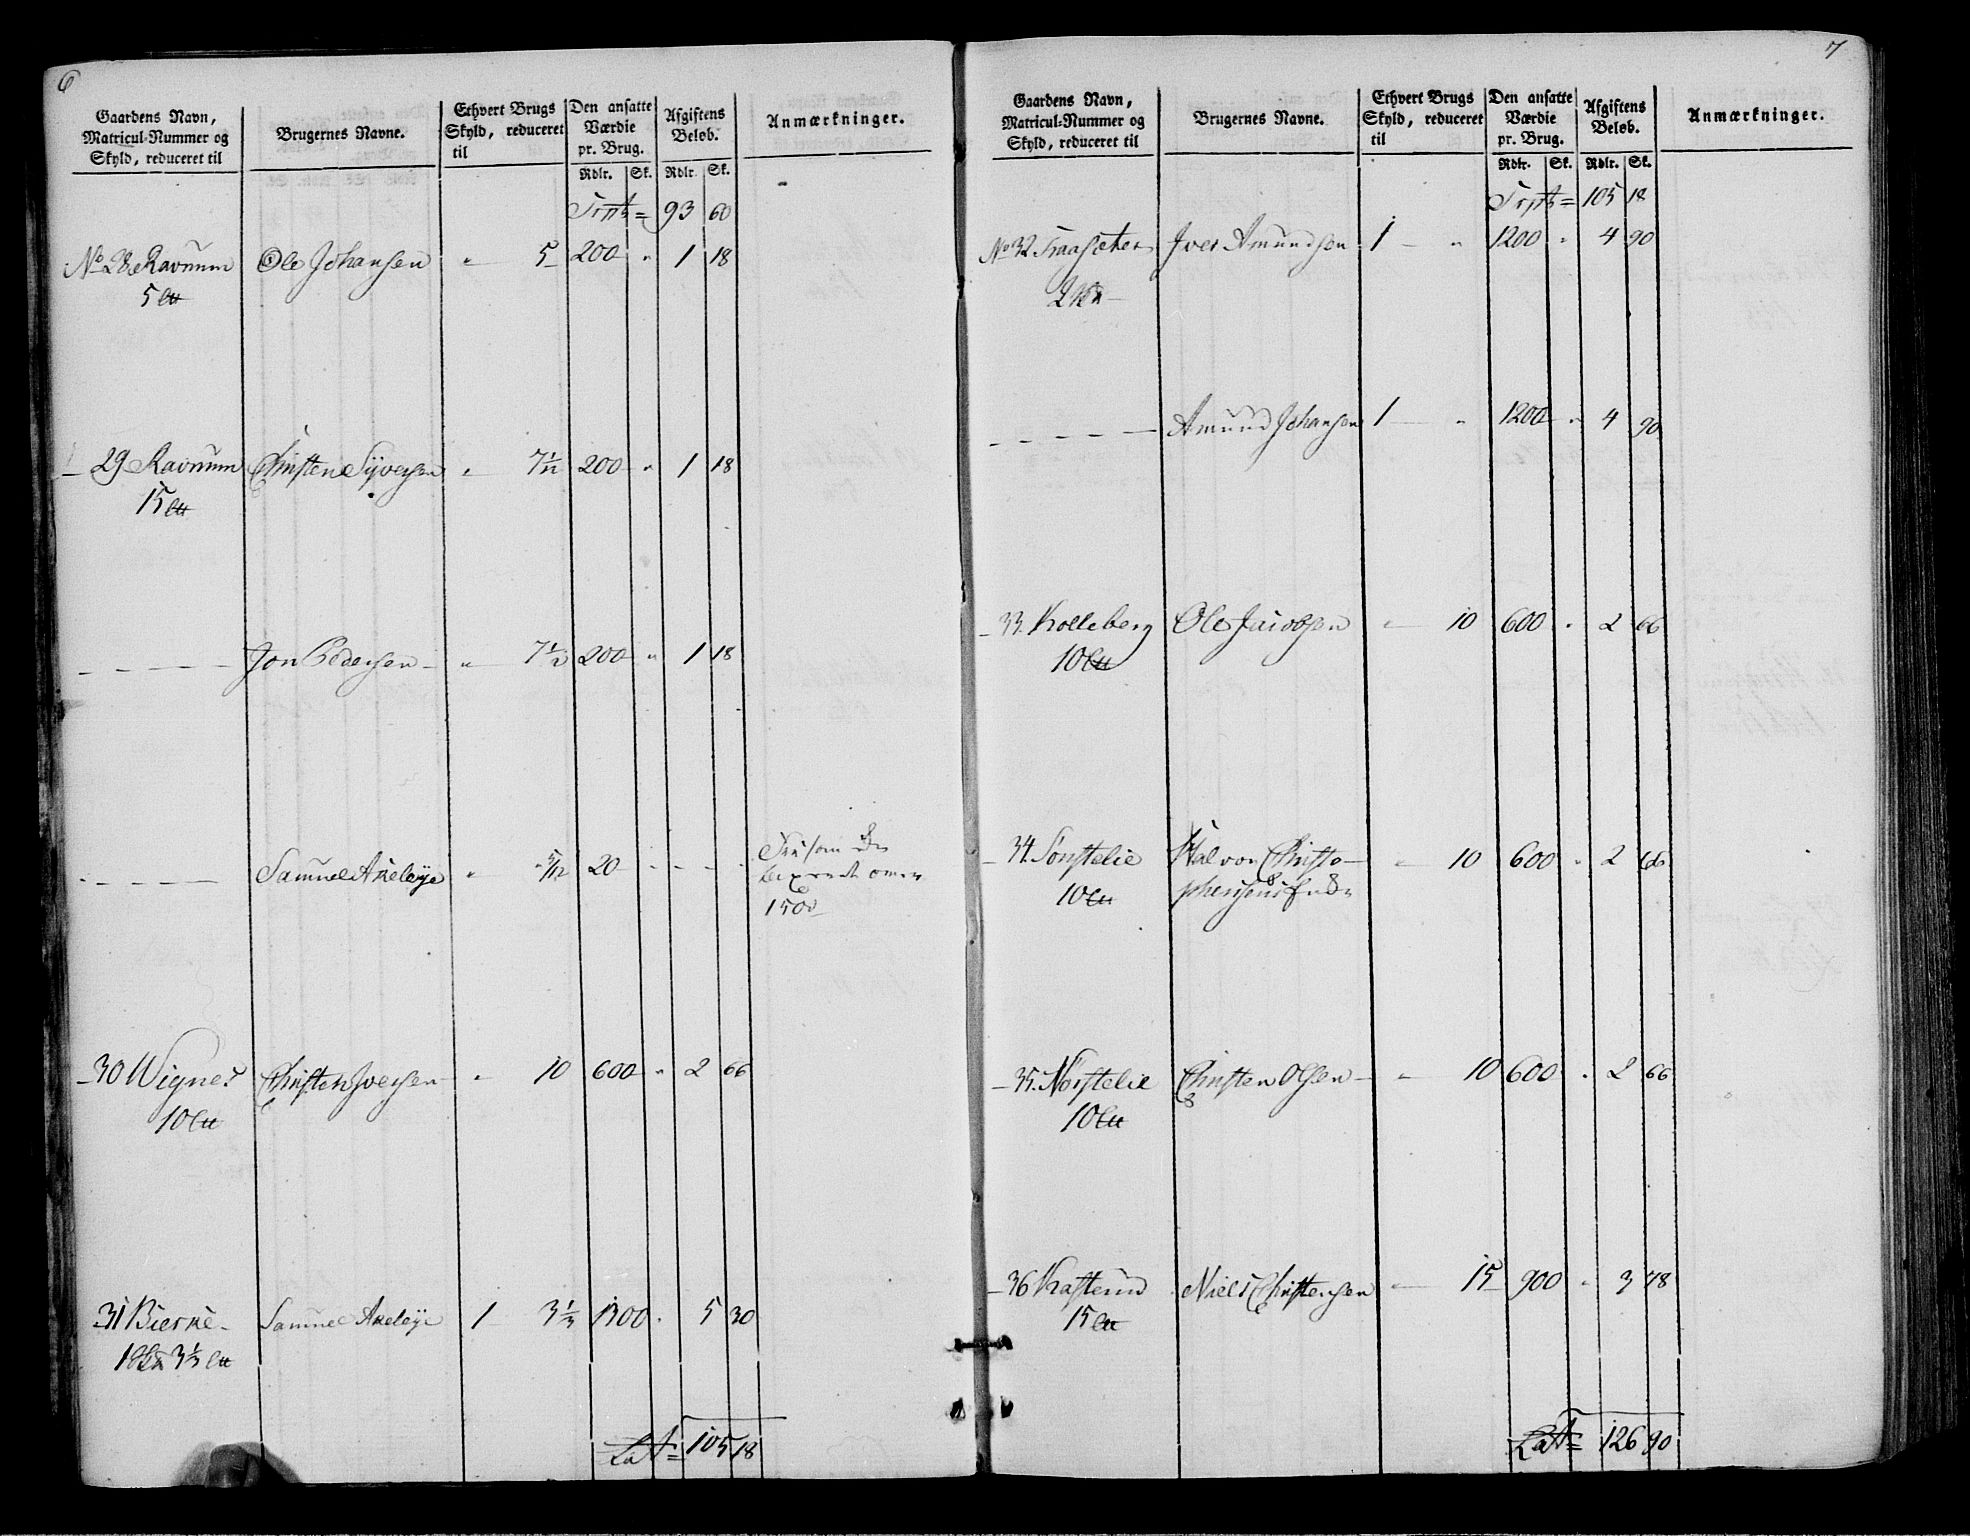 6
Gaardens Navn, Matricul-Nummer og Skyld, reduceret til | Brugernes Navne. | Ethvert Brugs Skyld, reduceret til | Den ansatte Værdie pr. Brug. | Afgiftens Beløb. | Anmærkninger.
Rdlr. Sk. Rdlr. Sk.
Trpt = 93 60
No 28 Ravnum Ole Johansen " 5 200 " 1 18
5 l℔
29 Ravnum Christen Syversen " 7½ 200 " 1 18
15 l℔
Jon Pedersen " 7½ 200 " 1 18
Samuel Axeløye " 5/12 20 - - -
1500
30 Wignes Christen Iversen " 10 600 " 2 66
10 l℔
31 Bierke Samuel Axeløye 1 3⅓ 1300 " 5 30
1 3⅓ l℔
Lat = 105 18
7
Gaardens Navn, Matricul-Nummer og Skyld, reduceret til | Brugernes Navne. | Ethvert Brugs Skyld, reduceret til | Den ansatte Værdie pr. Brug. | Afgiftens Beløb. | Anmærkninger.
Rdlr. Sk. Rdlr. Sk.
Trpt = 105 18
No 32 Traaseter Iver Amundsen 1 " 1200 " 4 90
2
Amund Johansen 1 " 1200 " 4 90
33. Kolleberg Ole Jacobsen " 10 600 " 2 66
10 l℔
34. Sønstelie Halvor Christo- " 10 600 " 2 66
10 l℔ phersens Enke
35. Norstelie Christen Olsen " 10 600 " 2 66
10 l℔
36 Kasterud Niels Christensen 15 900 " 3 78
15 l℔
Lat = 126 90